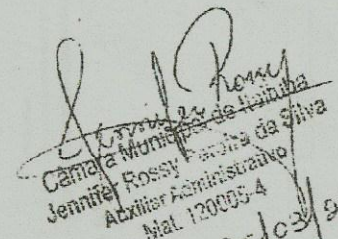 Jennifer Rossy
Câmara Municipal de Itaituba
Jennifer Rossy da Silva
Auxiliar Administrativo
Mat. 120005-4
/03/2